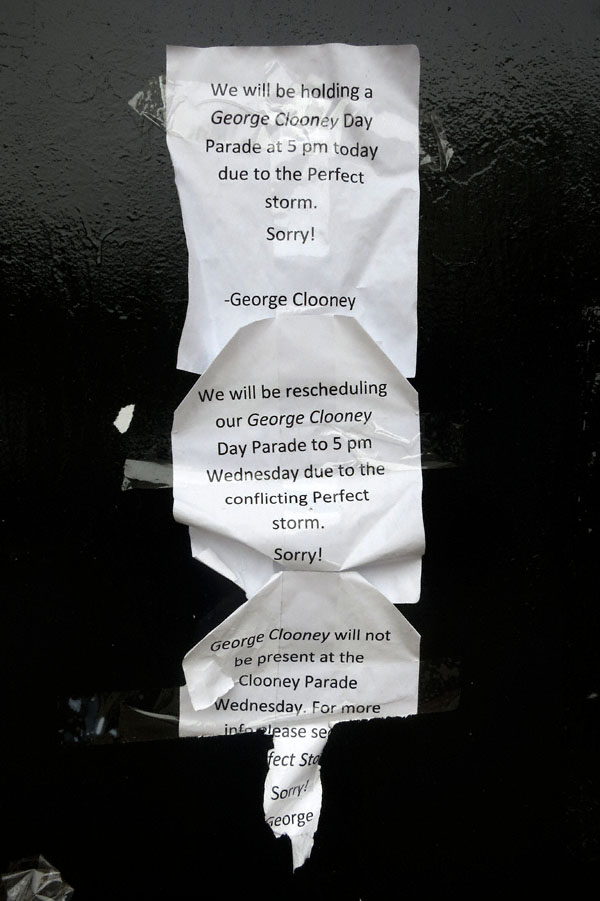 We will be holding a
George Clooney Day
Parade at 5 pm today
due to the Perfect
storm.
Sorry!
-George Clooney
We will be rescheduling
our George Clooney
Day Parade to 5 pm
Wednesday due to the
conflicting Perfect
storm.
Sorry!
George Clooney will not
be present at the
Clooney Parade
Wednesday. For more
info please se
fect Sto
Sorry!
George